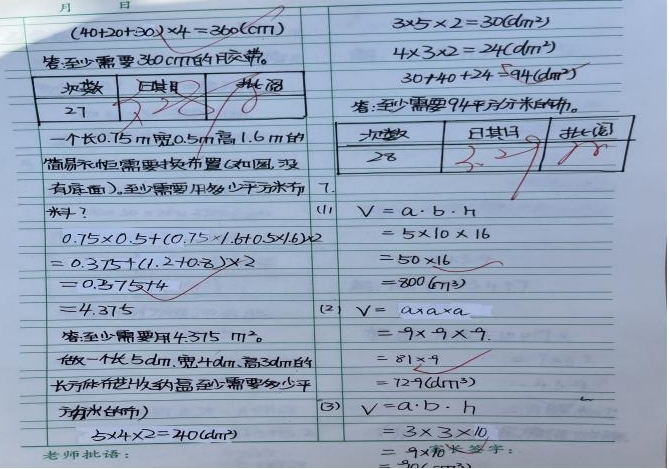 月 日
(40+20+30)×4=360(cm)
答:至少需要360cm的胶带。
次数 日期 批阅
27 3.28
一个长0.75m宽0.5m高1.6m的
简易衣柜需要换布置(如图,没
有底面)。至少需要用多少平方米布
料?
0.75×0.5+(0.75×1.6+0.5×1.6)×2
=0.375+(1.2+0.8)×2
=0.375+4
=4.375
答:至少需要用4.375 m²。
做一个长5dm.宽4dm.高3dm的
长方体
至少需要多少平
5×4×2=40(dm²)
老师批语:
3×5×2=30(dm²)
4×3×2=24(dm²)
30+40+24=94(dm²)
答:至少需要94平方分米的布。
次数 日期 批阅
28 3.29
7.
(1) V=a·b·h
=5×10×16
=50×16
=800(cm³)
(2) V=a×a×a
=9×9×9
=81×9
=729(dm³)
(3) V=a·b·h
=3×3×10
=9×10
家长签字:
=90(cm³)